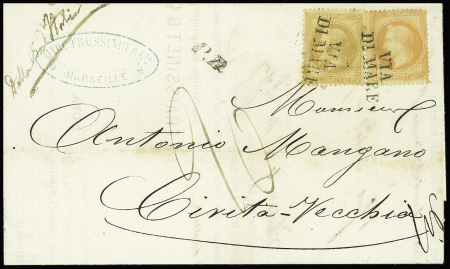 MARC FRUSSINET & CIE
MARSEILLE
P.D.
VIA
DI MARE
VIA
DI MARE
Monsieur
Antonio Mangano
Civita-Vecchia